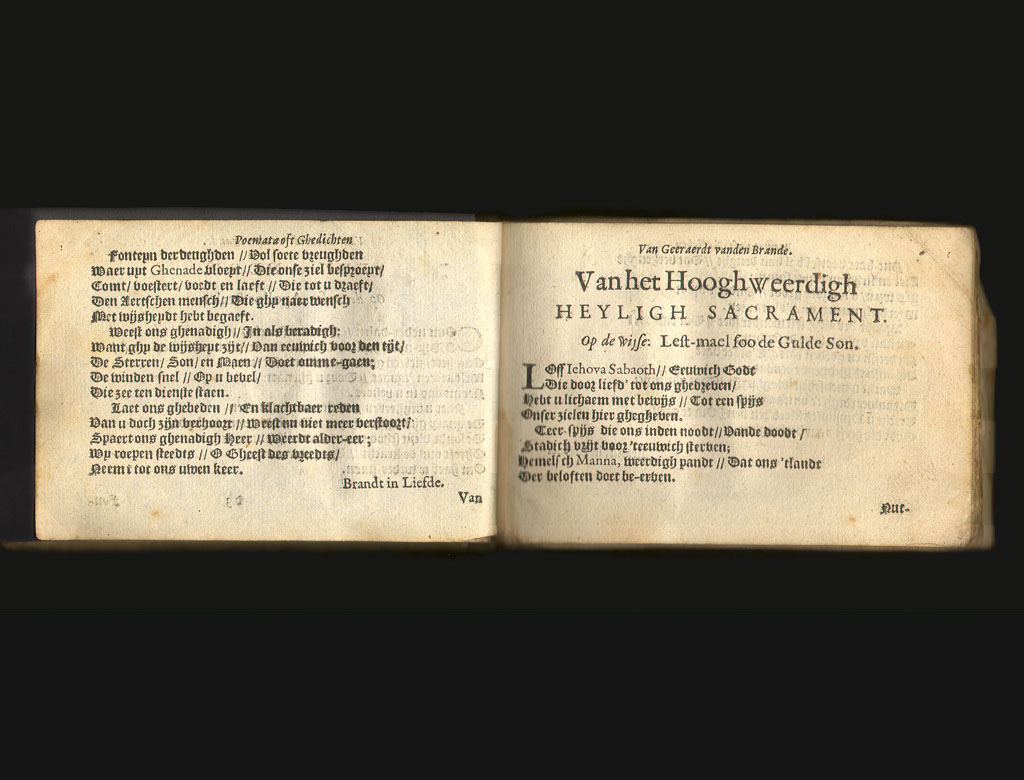 Poemata oft Ghedichten
Fonteyn der deughden // Vol soete vreughden
Waer uyt Ghenade vloeyt // Die onse ziel besproeyt/
Comt/ voestert/ voedt en laeft // Die tot u draeft/
Den Aertschen mensch // Die ghy naer wensch
Met wijsheydt hebt begaeft.
Weest ons ghenadigh // Jn als beradigh:
Want ghy de wijsheyt zijt // Van eeuwich voor den tijt/
De Sterren/ Son/ en Maen // Doet omme-gaen;
De winden snel // Op u bevel/
Die zee ten dienste staen.
Laet ons ghebeden // En klachtbaer reden
Van u doch zijn verhoort // Weest nu niet meer verstoort/
Spaert ons ghenadigh Heer // Weerdt alder-eer;
Wy roepen steedts // O Gheest des vreedts/
Neemt tot ons uwen keer.
Brandt in Liefde.
Van
Van Geeraerdt vanden Brande.
Van het Hooghweerdigh
HEYLIGH SACRAMENT.
Op de wijse: Lest-mael soo de Gulde Son.
LOff Iehova Sabaoth // Eeuwich Godt
Die door liefd' tot ons ghedreven/
Hebt u lichaem met bewijs // Tot een spijs
Onser zielen hier ghegheven.
Teer-spijs die ons inden noodt // Vande doodt /
Stadich vrijt voor 'teeuwich sterven;
Hemelsch Manna, weerdigh pandt // Dat ons 'tlandt
Der beloften doet be-erven.
Nut-